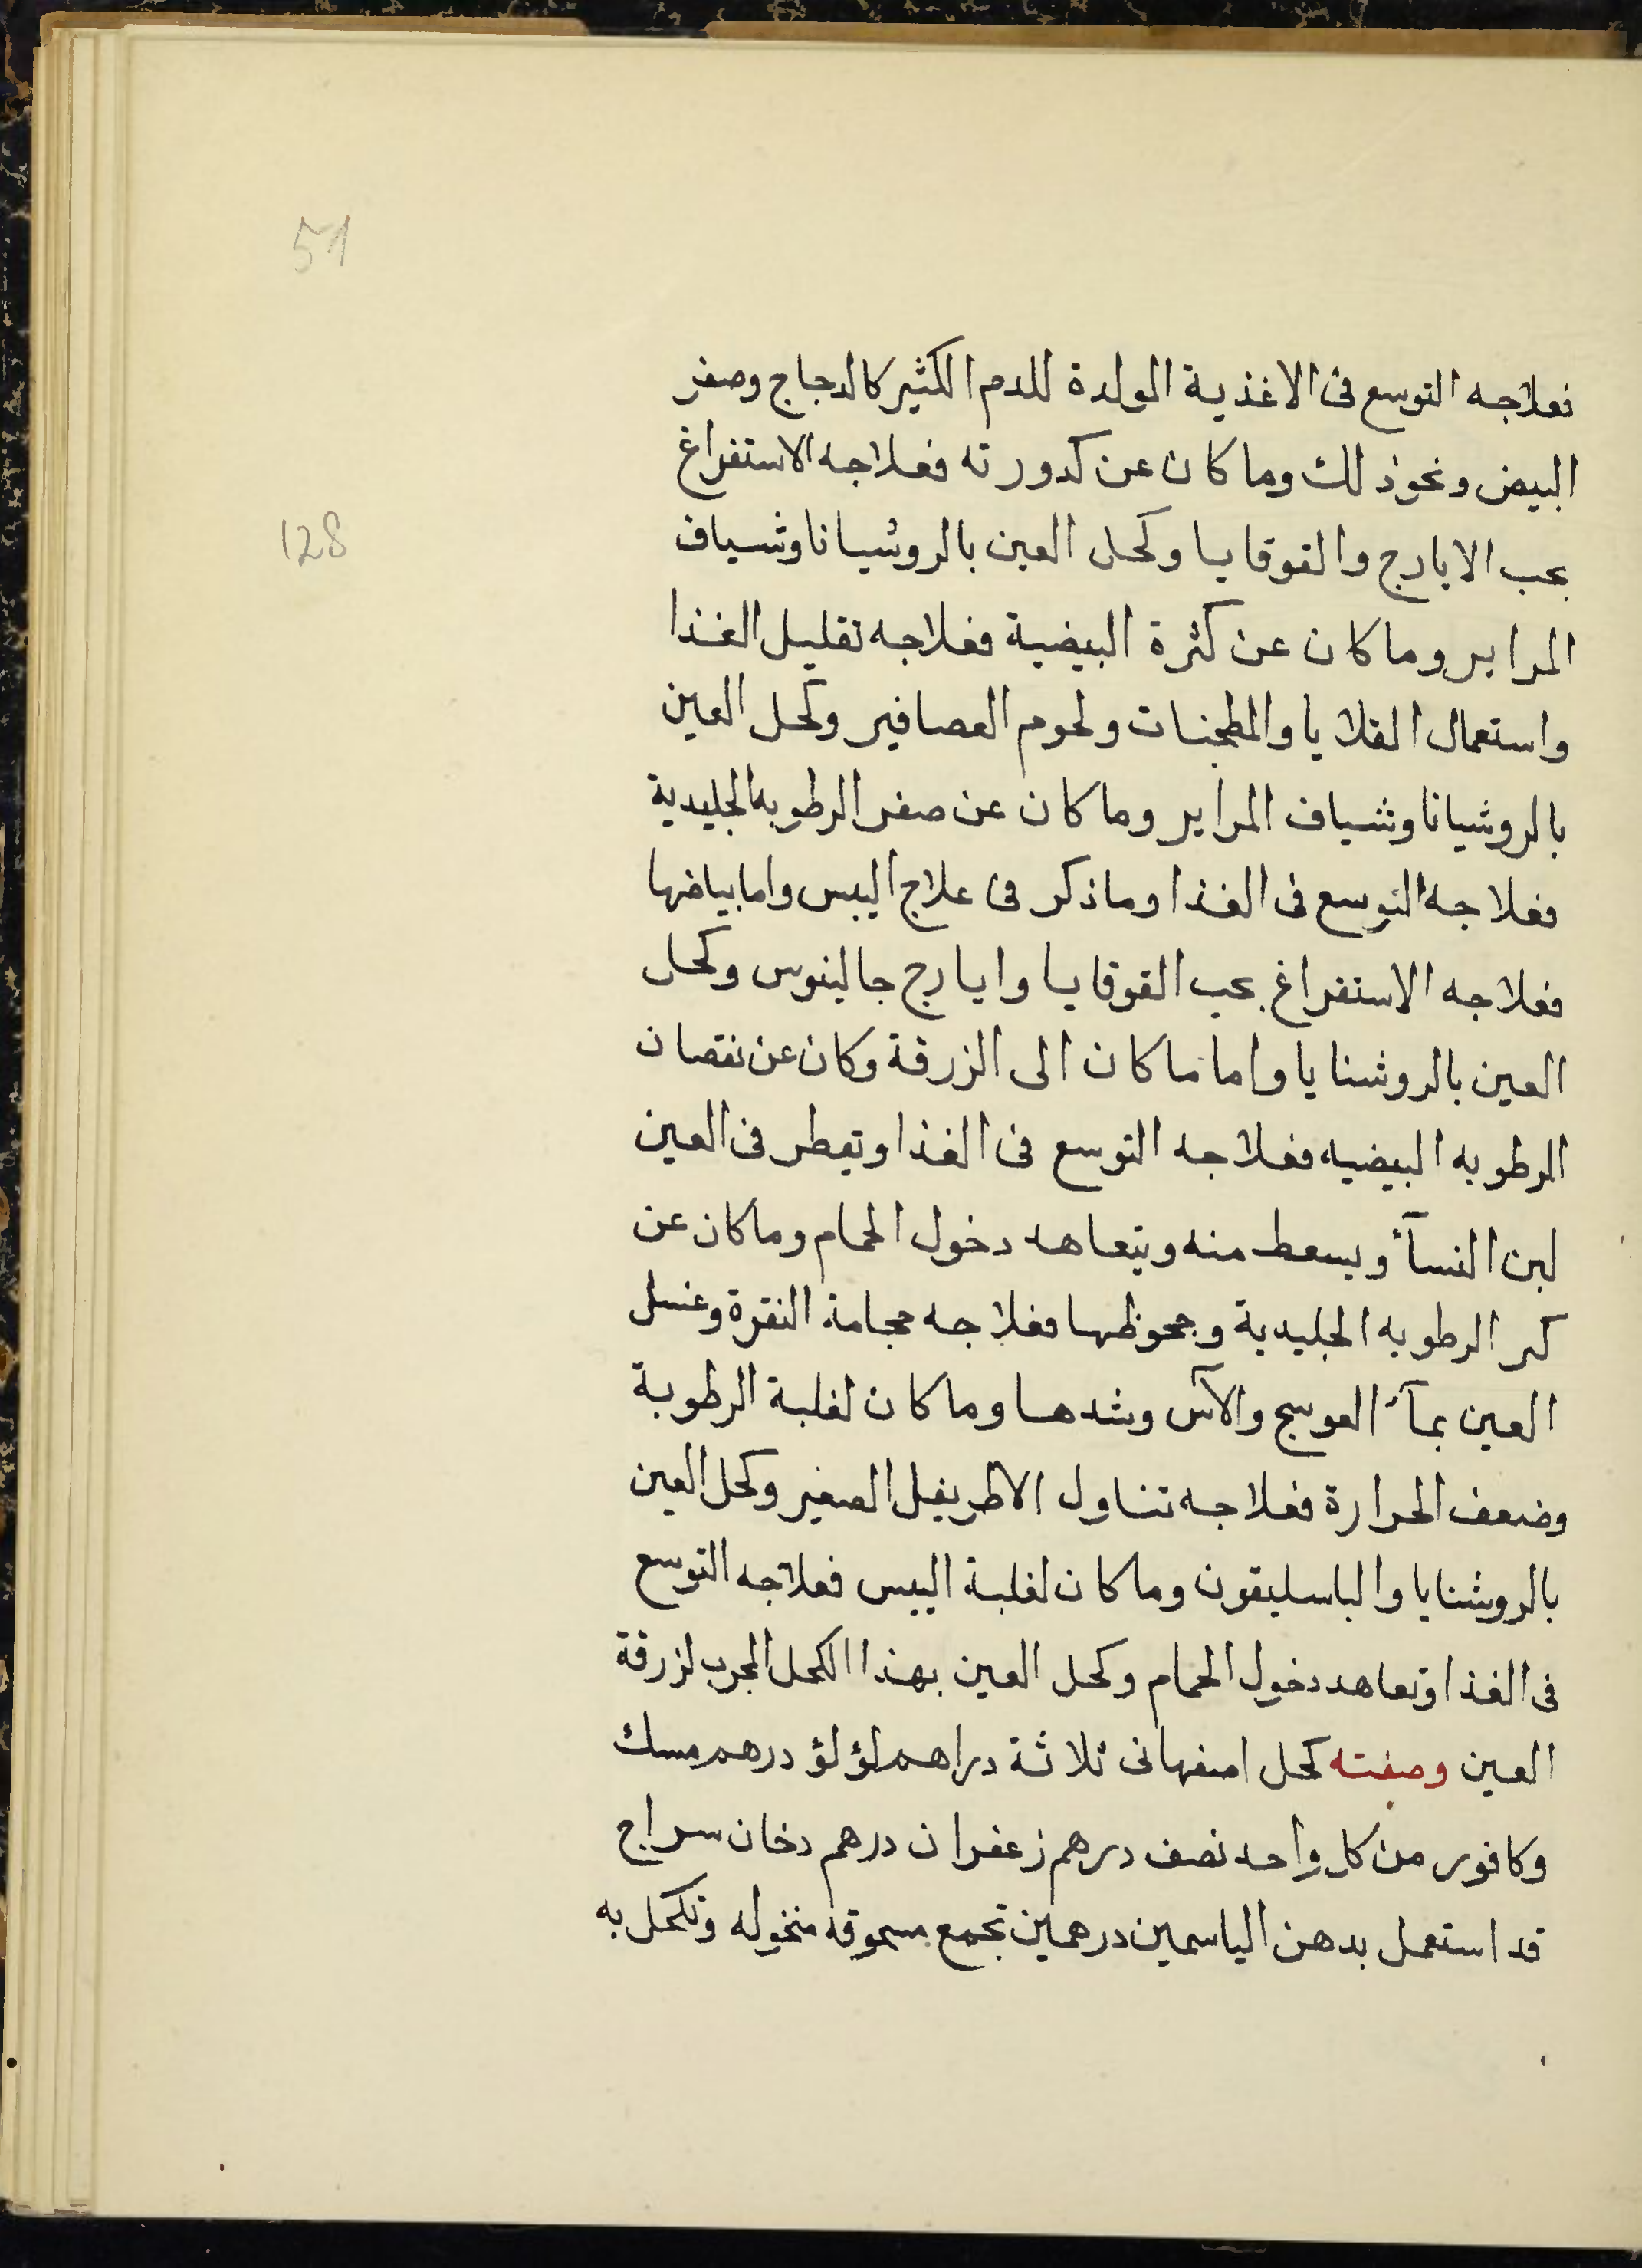 51
فعلاجه التوسع فى الاغذية المولدة للدم الكثير كالدجاج وصفر
البيض ونحوذلك وما كان عن كدورته فعلاجه الاستفراغ
128
بحب الايارج والقوقايا وكحل العين بالروشيانا وشياف
المراير وما كان عن كثرة البيضية فعلاجه تقليل الغذا
واستعمال القلايا والمطجنات ولحوم العصافير وكحل العين
بالروشيانا وشياف المراير وما كان عن صغر الرطوبه الجليدية
فعلاجه التوسع فى الغذا وماذكر فى علاج اليبس واما بياضها
فعلاجه الاستفراغ بحب القوقايا وايارج جالينوس وكحل
العين بالروشنايا واما ما كان الى الزرقة وكان عن نقصان
الرطوبه البيضيه فعلاجه التوسع فى الغذا وتقطر فى العين
لبن النسآء ويسعط منه ويتعاهد دخول الحمام وما كان عن
كبر الرطوبه الجليدية وجحوظها فعلاجه حجامة النقرة وغسل
العين بمآء العوسج والآس وشدها وما كان لغلبة الرطوبة
وضعف الحرارة فعلاجه تناول الاطريفل الصغير وكحل العين
بالروشنايا والباسليقون وما كان لغلبة اليبس فعلاجه التوسع
فى الغذا وتعاهد دخول الحمام وكحل العين بهذا الكحل المجرب لزرقة
العين وصفته كحل اصفهانى ثلاثة دراهم لؤلؤ درهم مسك
وكافور من كل واحد نصف درهم زعفران درهم دخان سراج
قد استعمل بدهن الياسمين درهمين تجمع مسحوقه منخوله وتكحل به